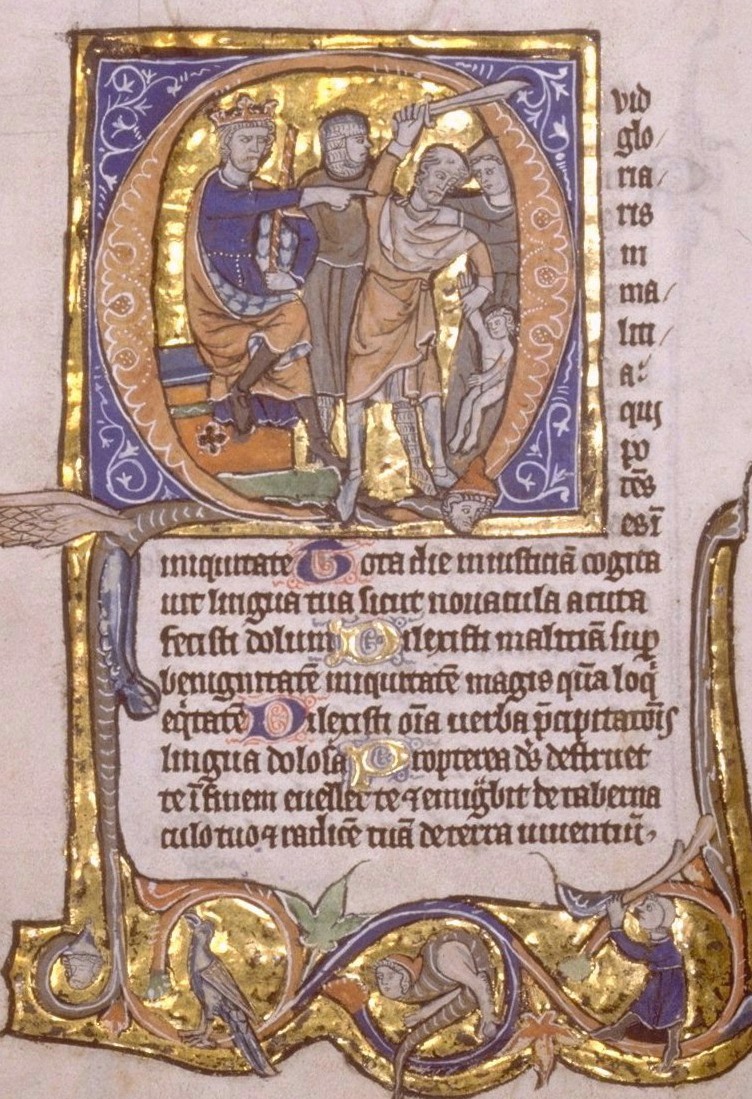 Q
vid
glo/
ria/
ris
in
ma/
liti/
a?
qui
po
tēs
es ī
iniquitate Tota die iniusticiā cogita
uit lingua tua sicut nouacula acuta
fecisti dolum Dilexisti maliciā sup
benignitatē iniquitatē magis quā loq
eq̄tatē Dilexisti oīa uerba p̄cipitatōis
lingua dolosa Propterea dŝ destruet
te ī finem euellet te ⁊ emig̈bit de taberna
culo tuo ⁊ radicē tuā de terra uiuentiū